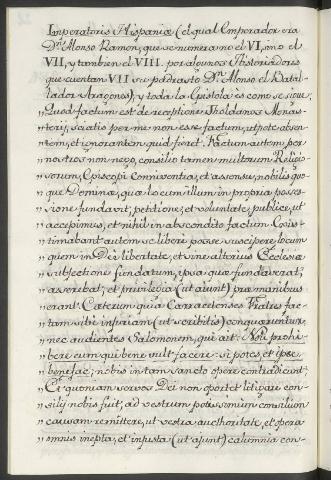 Imperatoris Hispaniæ (el qual Emperador era
Dn. Alonso Ramon, que se numera no el VI, sino el
VII, y tambien el VIII. por algunos Historiadores
que cuentan VII su padrasto Dn. Alonso el Batal-
lador Aragones), y toda la Epistola es como se sigue.
"Quod factum est de receptione Tholdanos Monas-
"terij, sciatis per me non esse factum, utpote absen-
"tem, et ignorantem quid fieret. Factum autem per
"nostros non nego, consilio tamen multorum Religio-
"sorum, Episcopi conniventia, et assensu, nobilis quo-
"que Dominæ, quæ locum illum in propria posses-
"sione fundavit, petitione, et voluntate, publice, ut
"accepimus, et nihil in abscondito factum. Exis-
"timabant autem se libere posse suscipere locum
"quem in Dei libertate, et sine alterius Ecclesiæ
"subiectione fundatum, ipsa quæ fundaverat,
"asserebat, et privilegia (ut aiunt) præ manibus
"erant. Cæterum quia Carracetenses Fratres fac-
"tam sibi injuriam (ut scribitis) conqueruntur,
"nec audientes Salomonem, qui ait: Noli prohi-
"bere eum qui bene vult facere: si potes, et ipse
"benefac; nobis in tam sancto opere contradicunt;
"et quoniam servos Dei non oportet litigare con-
"silij nobis fuit, ad vestrum potissimum consilium
"causam remittere, ut vestra authoritate, et opera
"omnis inepta, et injusta (ut aiunt) calumnia con-